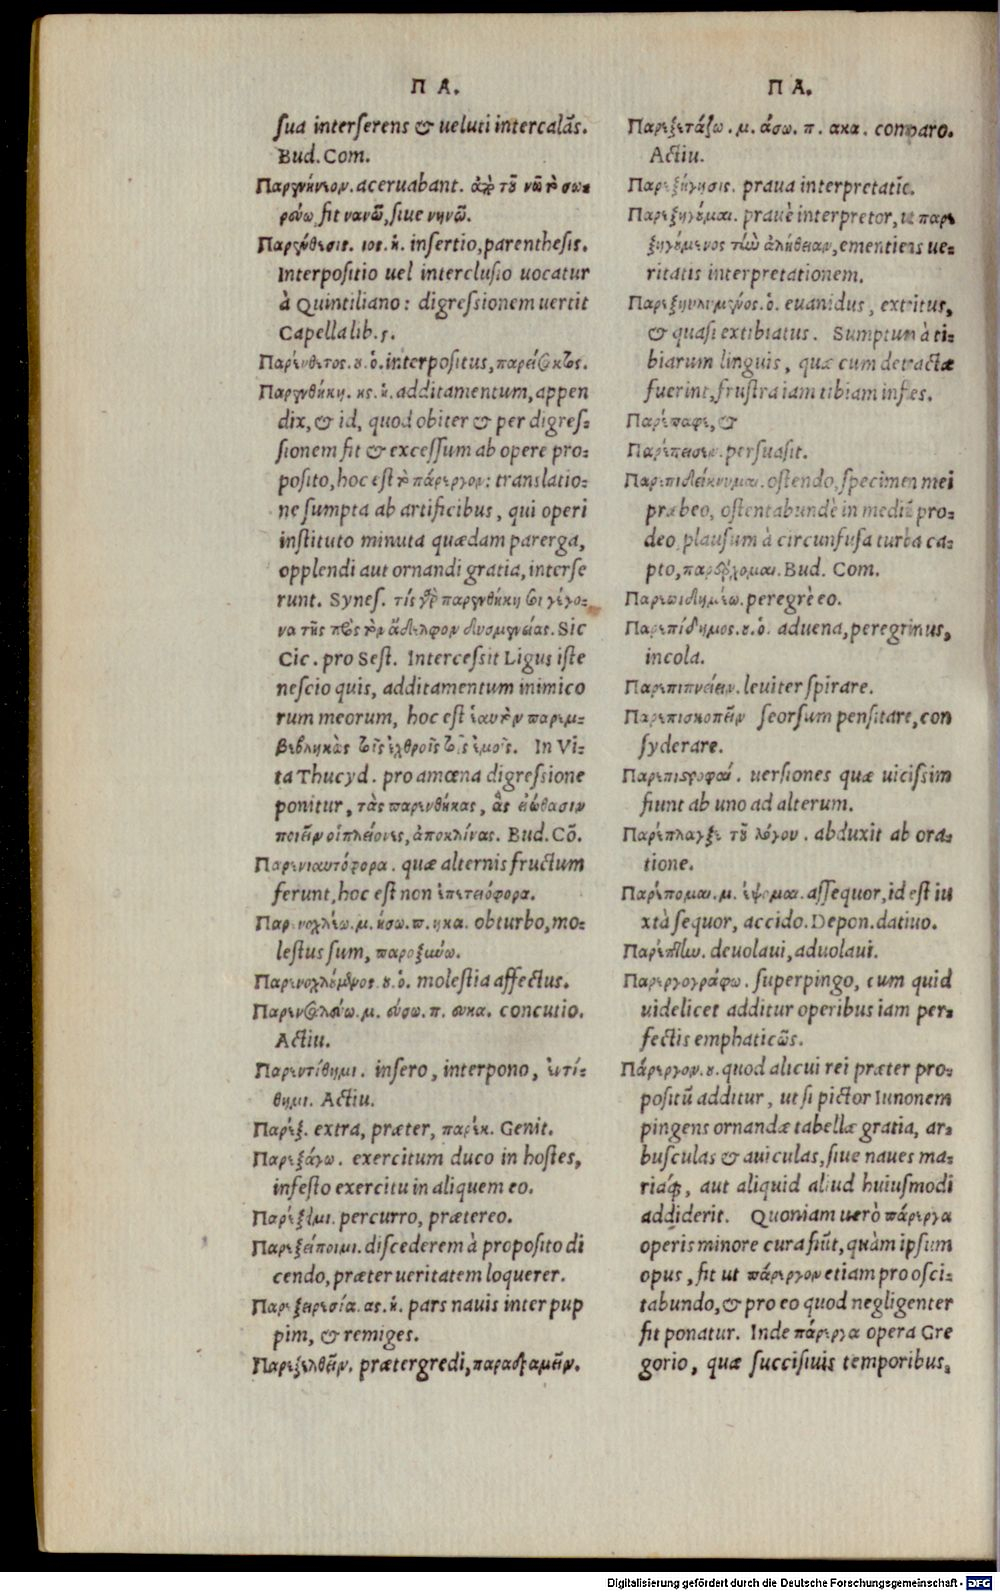 Π Α.
sua interserens & ueluti intercalās.
Bud. Com.
Παρενήνεον. aceruabant. ἀπὸ τοῦ νῶ τὸ σω-
ρεύω, fit νανῶ, siue νηνῶ.
Παρένθεσις. ιος. ἡ. insertio, parenthesis.
Interpositio uel interclusio uocatur
à Quintiliano: digressionem uertit
Capella lib. 5.
Παρένθετος. ου. ὁ. interpositus, παρείσακτος.
Παρενθήκη. ης. ἡ. additamentum, appen
dix, & id, quod obiter & per digres-
sionem fit & excessum ab opere pro-
posito, hoc est τὸ πάρεργον: translatio-
ne sumpta ab artificibus, qui operi
instituto minuta quædam parerga,
opplendi aut ornandi gratia, interse
runt. Synes. τίς γὰρ παρενθήκη τοι γέγο-
να τῆς πρὸς τὸν ἀδελφὸν δυσμενείας. Sic
Cic. pro Sest. Intercessit Ligus iste
nescio quis, additamentum inimico
rum meorum, hoc est ἑαυτὸν παρεμ-
βεβληκὼς τοῖς ἐχθροῖς τοῖς ἐμοῖς. In Vi-
ta Thucyd. pro amœna digressione
ponitur, τὰς παρενθήκας, ἃς εἰώθασιν
ποιεῖν οἱ πλείονες, ἀποκλίνας. Bud. Cō.
Παρενιαυτόφορα. quæ alternis fructum
ferunt, hoc est non ἐπετειόφορα.
Παρενοχλέω. μ. ήσω. π. ηκα. obturbo, mo-
lestus sum, παροξύνω.
Παρενοχλούμενος. ου. ὁ. molestia affectus.
Παρενσαλεύω. μ. εύσω. π. ευκα. concutio.
Actiu.
Παρεντίθημι. insero, interpono, ἐντί-
θημι. Actiu.
Παρέξ. extra, præter, παρέκ. Genit.
Παρεξάγω. exercitum duco in hostes,
infesto exercitu in aliquem eo.
Παρέξειμι. percurro, prætereo.
Παρεξείποιμι. discederem à proposito di
cendo, præter ueritatem loquerer.
Παρεξειρεσία. ας. ἡ. pars nauis inter pup
pim, & remiges.
Παρεξελθεῖν. prætergredi, παραδραμεῖν.
Π Α.
Παρεξετάζω. μ. άσω. π. ακα. comparo.
Actiu.
Παρεξήγησις. praua interpretatio.
Παρεξηγοῦμαι. prauè interpretor, ut παρε
ξηγούμενος τὴν ἀλήθειαν, ementiens ue-
ritatis interpretationem.
Παρεξηυλημένος. ὁ. euanidus, extritus,
& quasi extibiatus. Sumptum à ti-
biarum linguis, quæ cum detractæ
fuerint, frustra iam tibiam infles.
Παρέπαφε, &
Παρέπεισεν. persuasit.
Παρεπιδείκνυμαι. ostendo, specimen mei
præbeo, ostentabundè in mediū pro-
deo, plausum à circunfusa turba ca-
pto, παρέρχομαι. Bud. Com.
Παρεπιδημέω. peregrè eo.
Παρεπίδημος. ου. ὁ. aduena, peregrinus,
incola.
Παρεπιπνέειν. leuiter spirare.
Παρεπισκοπεῖν seorsum pensitare, con
syderare.
Παρεπιστροφαί. uersiones quæ uicissim
fiunt ab uno ad alterum.
Παρέπλαγξε τοῦ λόγου. abduxit ab ora-
tione.
Παρέπομαι. μ. έψομαι. assequor, id est iu
xtà sequor, accido. Depon. datiuo.
Παρέπτην. deuolaui, aduolaui.
Παρεργογράφω. superpingo, cum quid
uidelicet additur operibus iam per-
fectis emphaticῶς.
Πάρεργον. ου. quod alicui rei præter pro-
positū additur, ut si pictor Iunonem
pingens ornandæ tabellæ gratia, ar-
busculas & auiculas, siue naues ma-
riáq;, aut aliquid aliud huiusmodi
addiderit. Quoniam uerò πάρεργα
operis minore cura fiūt, quàm ipsum
opus, fit ut πάρεργον etiam pro osci-
tabundo, & pro eo quod negligenter
fit ponatur. Inde πάρεργα opera Gre
gorio, quæ succisiuis temporibus,
Digitalisierung gefördert durch die Deutsche Forschungsgemeinschaft - DFG